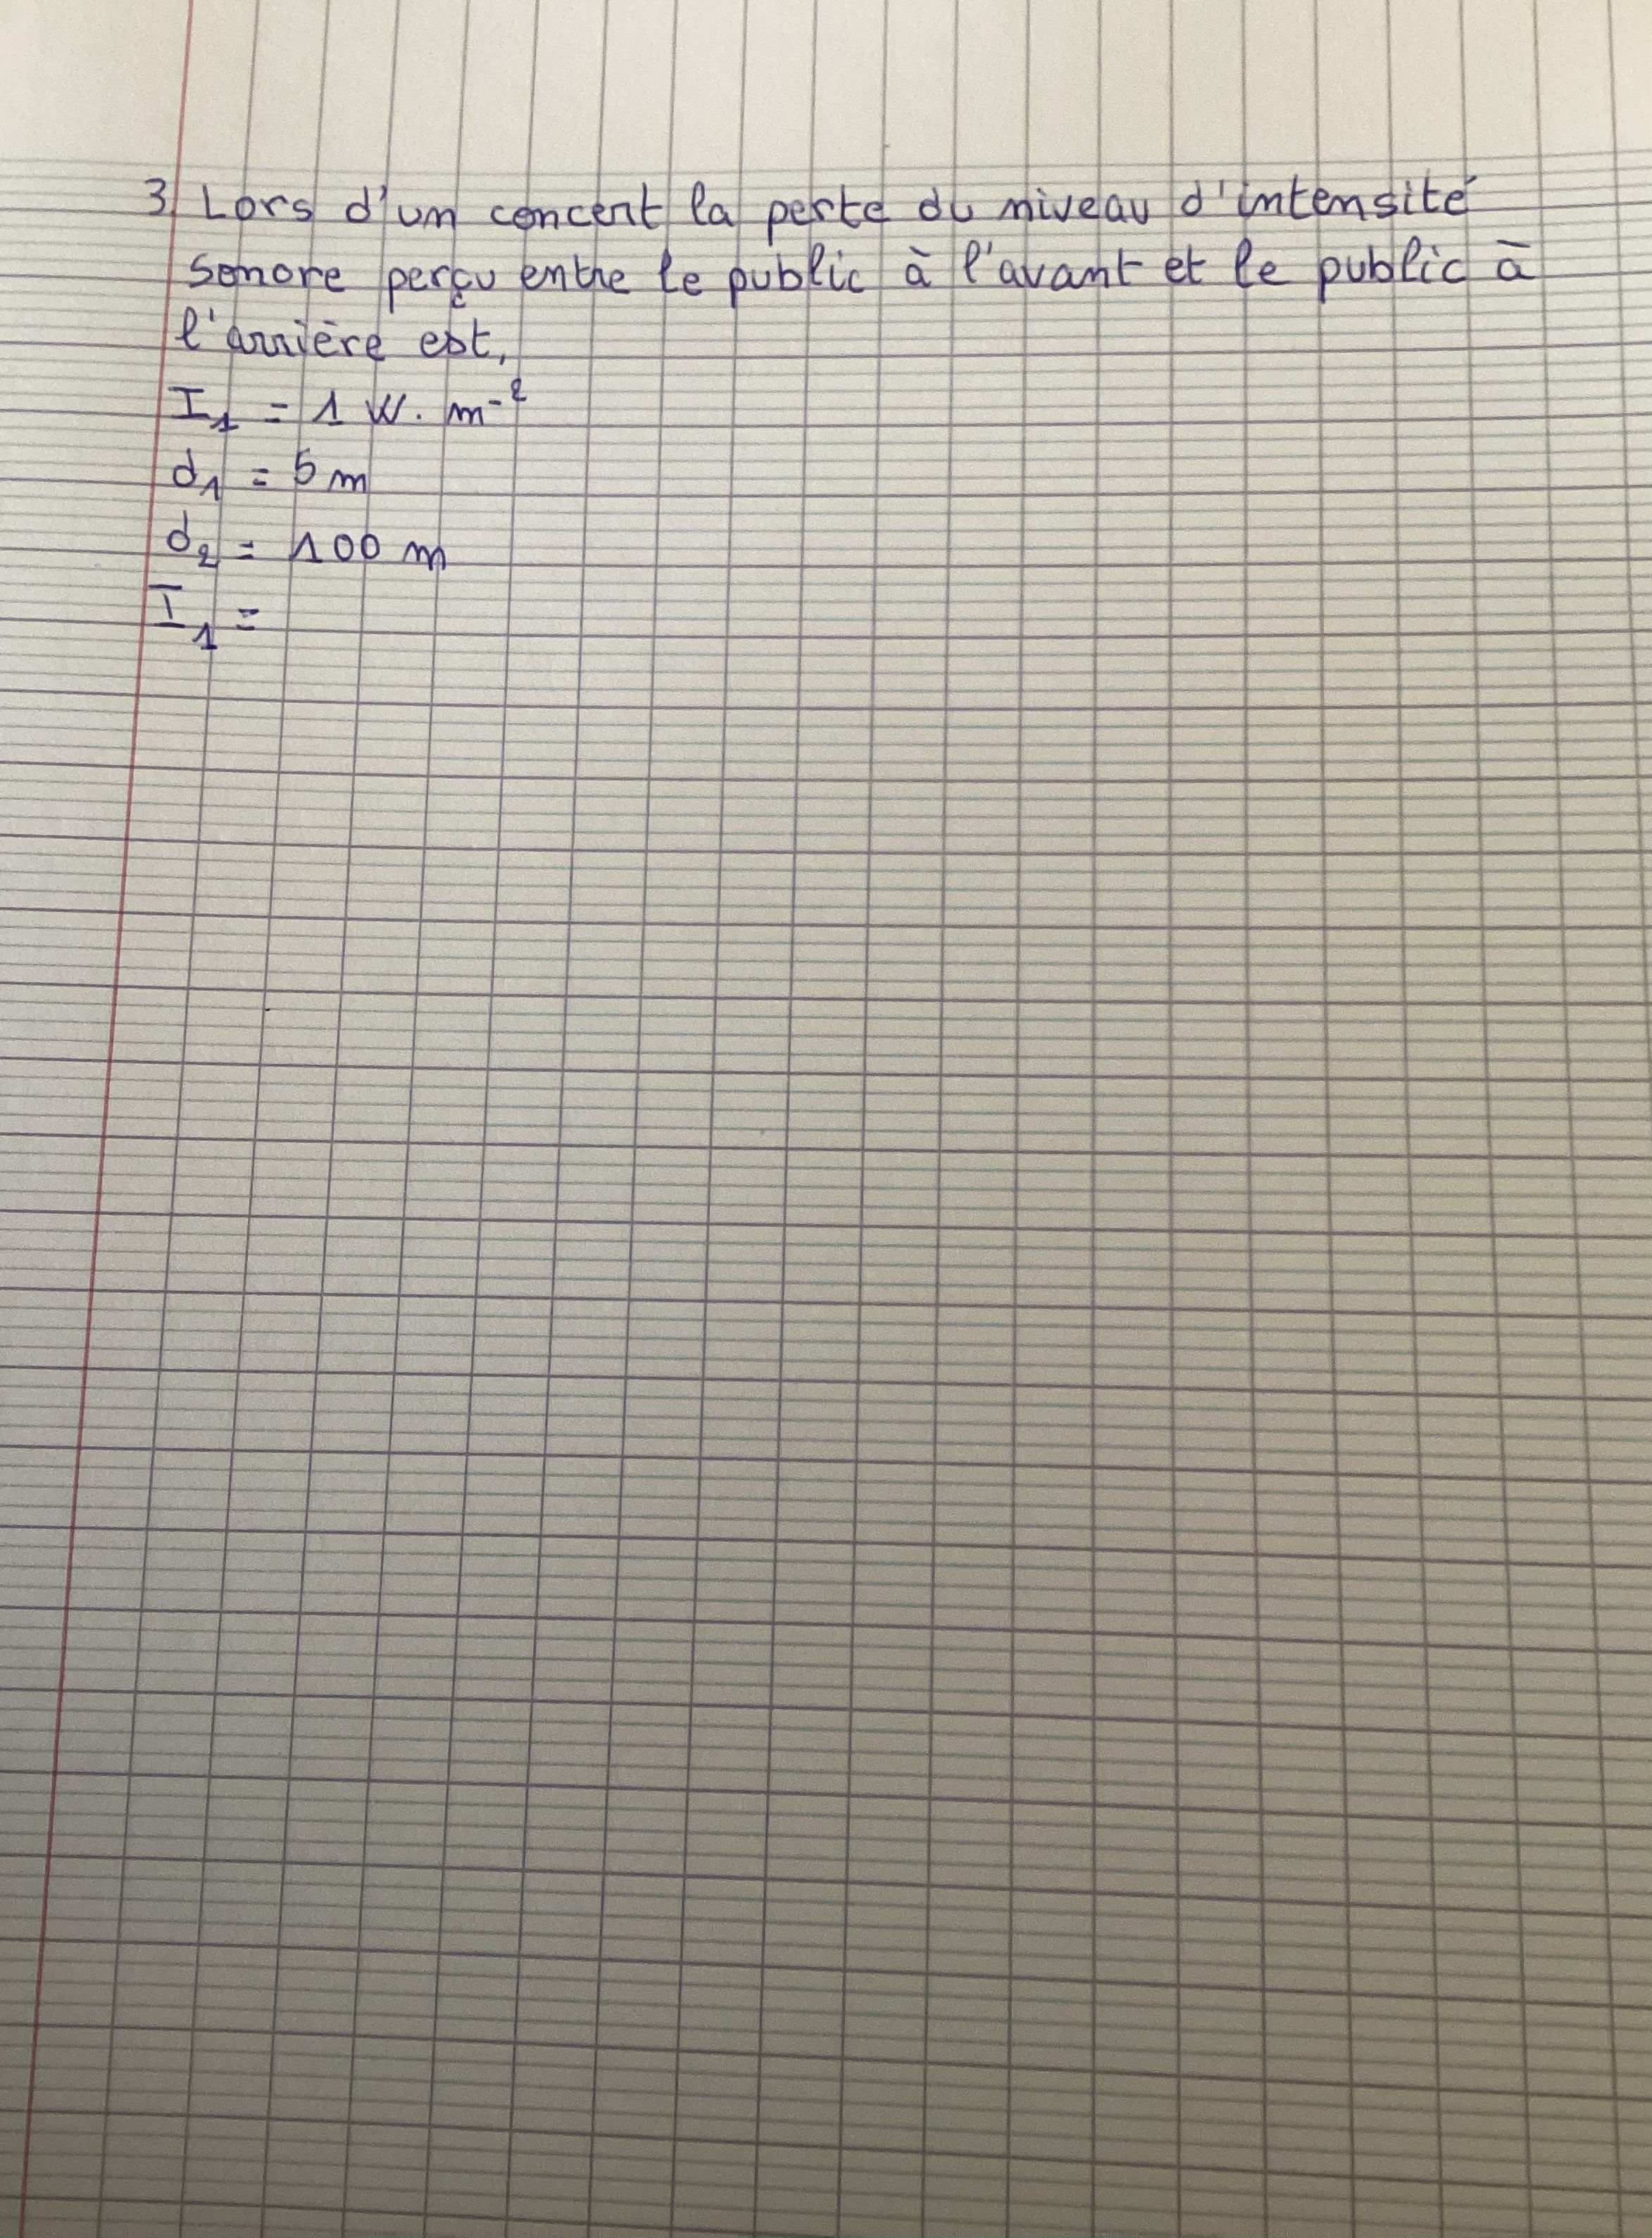 3. Lors d'un concert la perte du niveau d'intensité
sonore perçu entre le public à l'avant et le public à
l'arrière est,
I₁ = 1 W. m⁻²
d₁ = 5 m
d₂ = 100 m
I₁ =